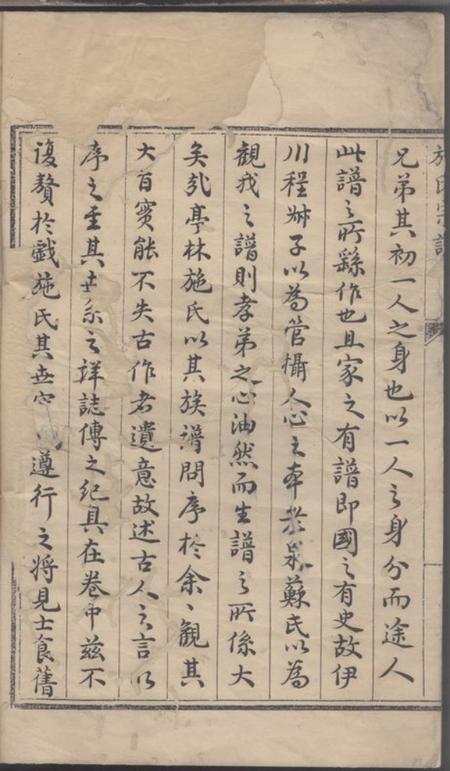 施氏宗譜
兄弟其初一人之身也以一人之身分而途人
此譜之所繇作也且家之有譜即國之有史故伊
川程叔子以為管攝人心之本老泉蘇氏以為
觀我之譜則孝弟之心油然而生譜之所係大
矣哉亭林施氏以其族譜問序於余、觀其
大旨實能不失古作者遺意故述古人之言以
序之至其世系之詳誌傳之紀具在卷中茲不
復贅於戲施氏其世守遵行之將見士食舊